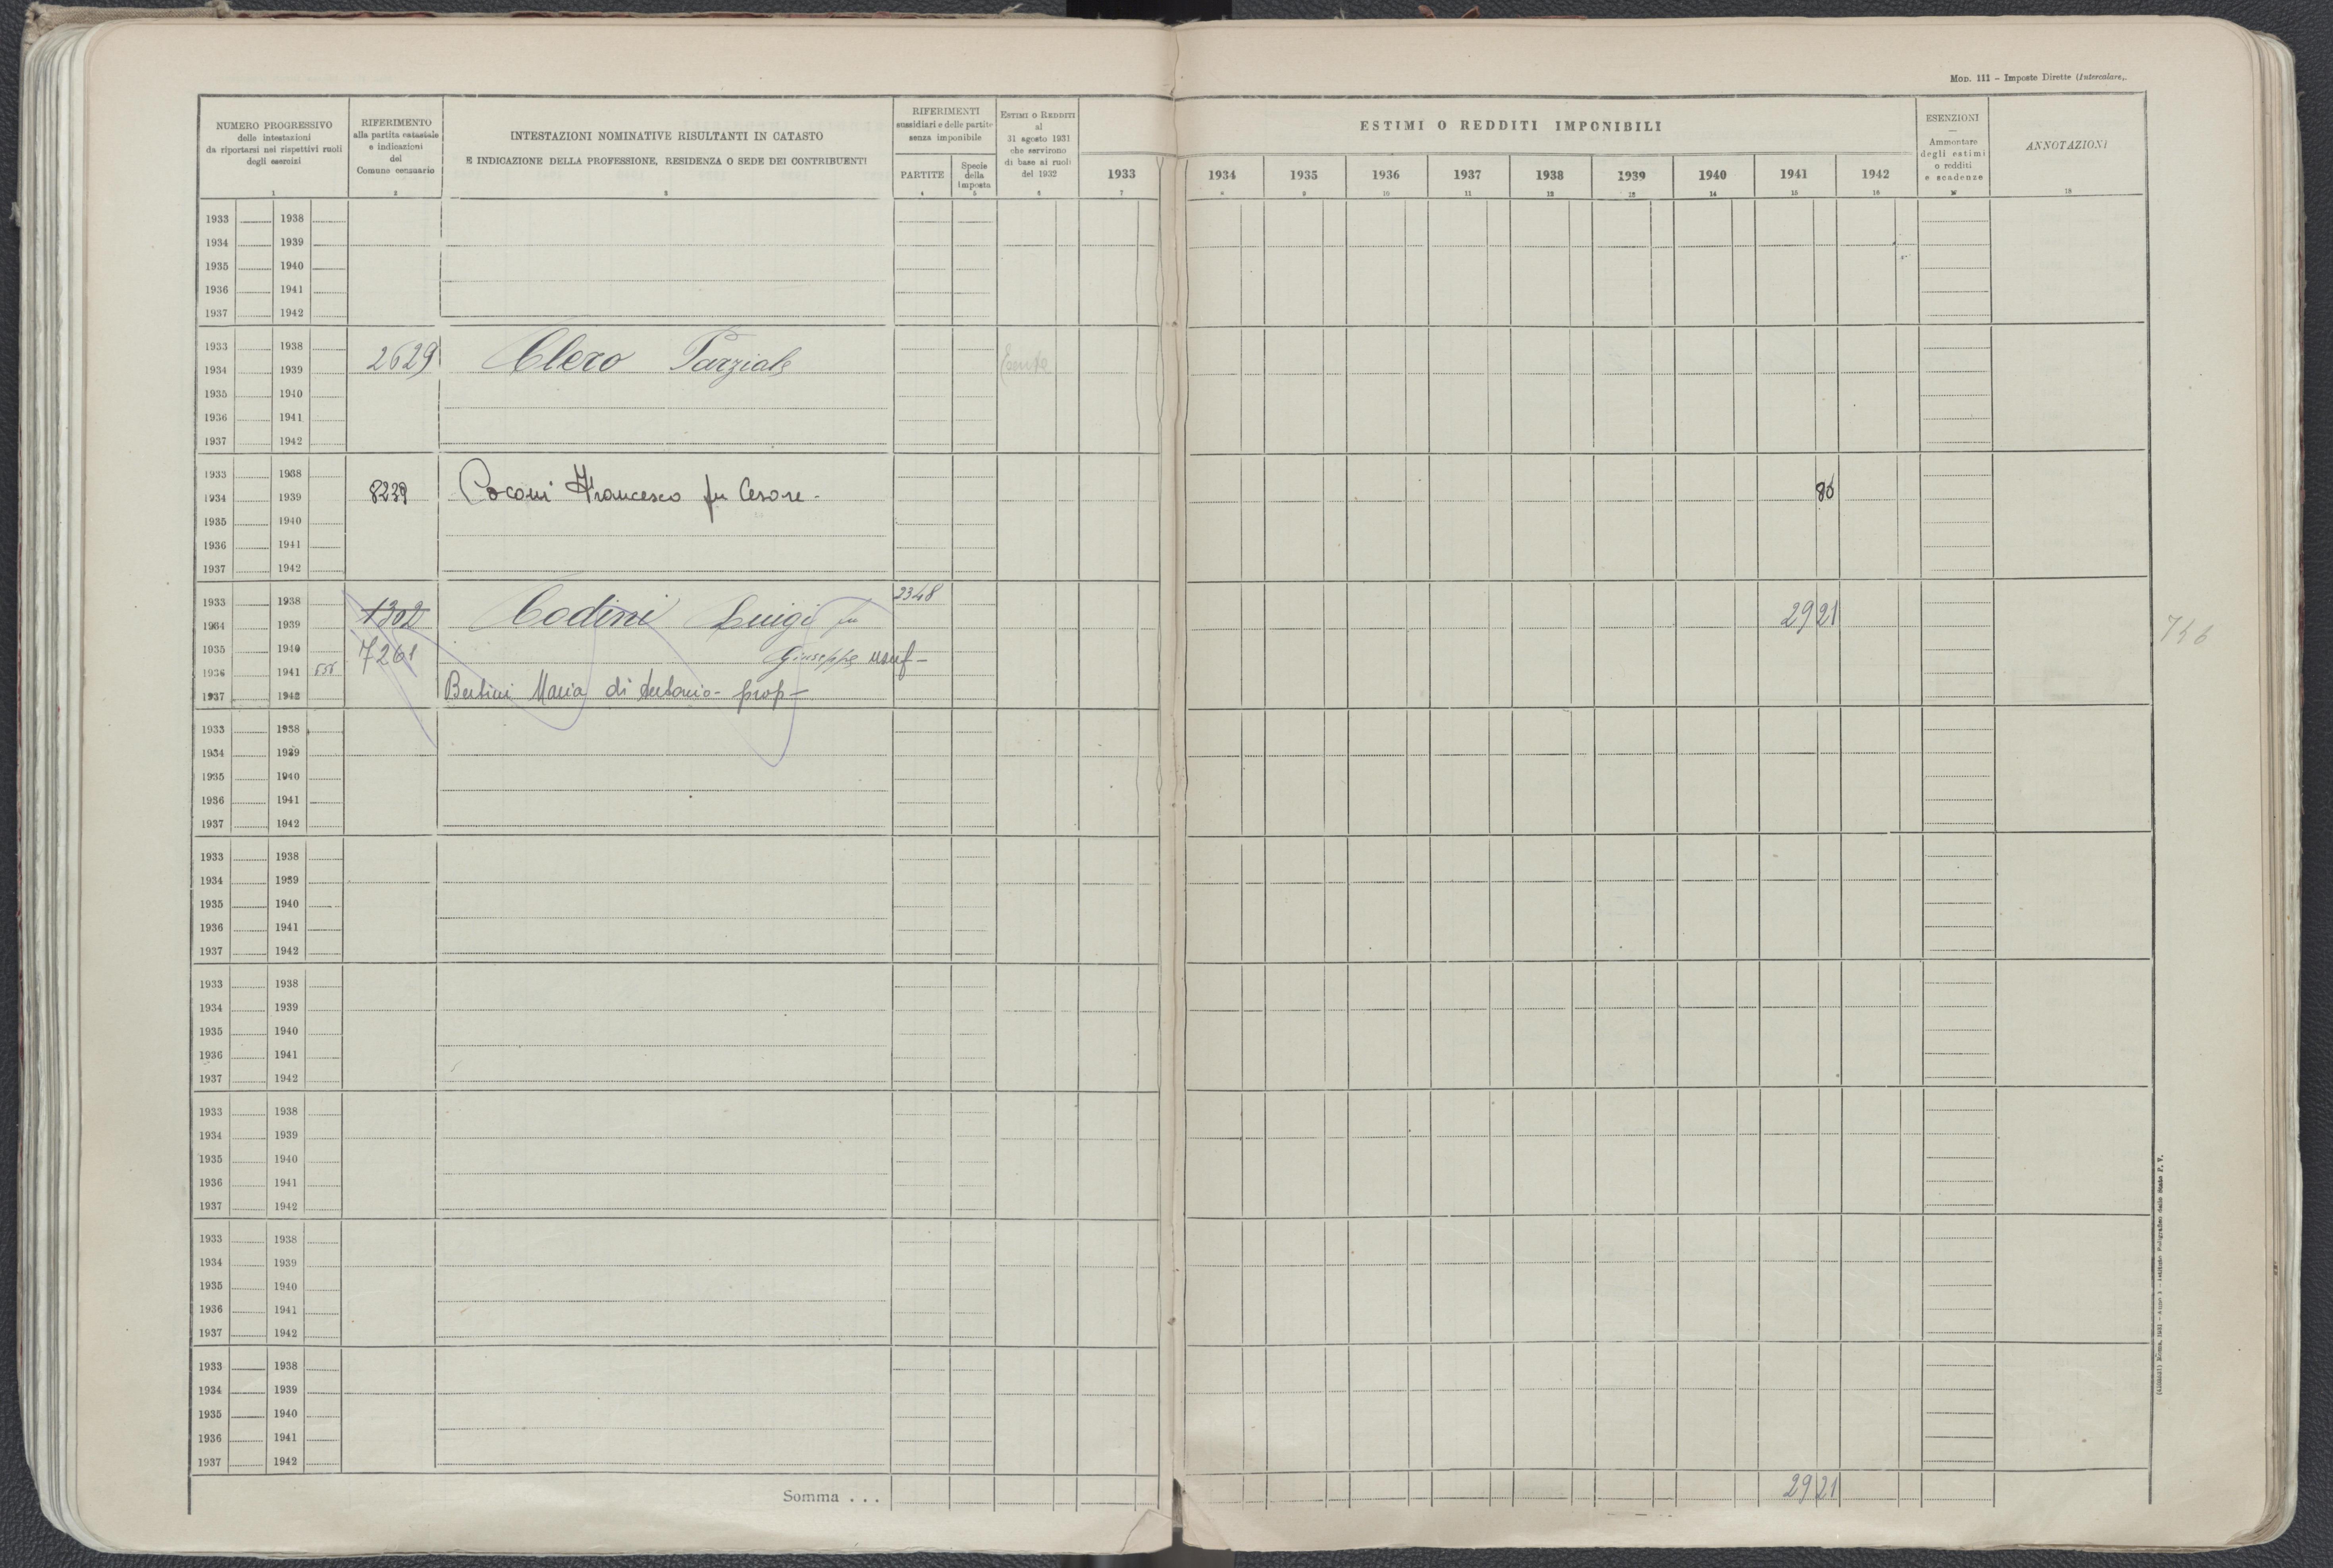 MOD. 111 – Imposte Dirette (Intercalare).
NUMERO PROGRESSIVO
delle intestazioni
da riportarsi nei rispettivi ruoli
degli esercizi
1
RIFERIMENTO
alla partita catastale
e indicazioni
del
Comune censuario
2
INTESTAZIONI NOMINATIVE RISULTANTI IN CATASTO
E INDICAZIONE DELLA PROFESSIONE, RESIDENZA O SEDE DEI CONTRIBUENTI
3
RIFERIMENTI
sussidiari e delle partite
senza imponibile
PARTITE
4
Specie
della
imposta
5
ESTIMI O REDDITI
al
31 agosto 1931
che servirono
di base ai ruoli
del 1932
6
ESTIMI O REDDITI IMPONIBILI
1933 1934 1935 1936 1937 1938 1939 1940 1941 1942
7 8 9 10 11 12 13 14 15 16
ESENZIONI
—
Ammontare
degli estimi
o redditi
e scadenze
17
ANNOTAZIONI
18
1933 1938
1934 1939
1935 1940
1936 1941
1937 1942
1933 1938
2629 Clero Parziale Esente
1934 1939
1935 1940
1936 1941
1937 1942
1933 1938
8239 Coconi Francesco fu Cesare - 86
1934 1939
1935 1940
1936 1941
1937 1942
1933 1938 2348
1302 Codini Luigi fu 2921
1934 1939
1935 1940
7261 Giuseppe usuf -
1936 1941
Bertini Maria di Antonio - prop -
1937 1942
1933 1938
1934 1939
1935 1940
1936 1941
1937 1942
1933 1938
1934 1939
1935 1940
1936 1941
1937 1942
1933 1938
1934 1939
1935 1940
1936 1941
1937 1942
1933 1938
1934 1939
1935 1940
1936 1941
1937 1942
1933 1938
1934 1939
1935 1940
1936 1941
1937 1942
1933 1938
1934 1939
1935 1940
1936 1941
1937 1942
Somma . . . 2921